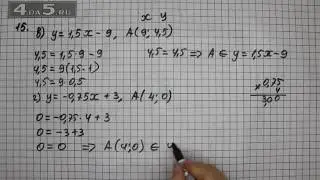 4da5.ru
x y
15.
в) y = 1,5x − 9, A(9; 4,5)
4,5 = 1,5·9 − 9
4,5 = 4,5 ⇒ A ∈ y = 1,5x − 9
4,5 = 9(1,5 − 1)
4,5 = 9·0,5
г) y = −0,75x + 3, A(4; 0)
0 = −0,75·4 + 3
0 = −3 + 3
0 = 0 ⇒ A(4; 0) ∈ y
0,75
4
3,00